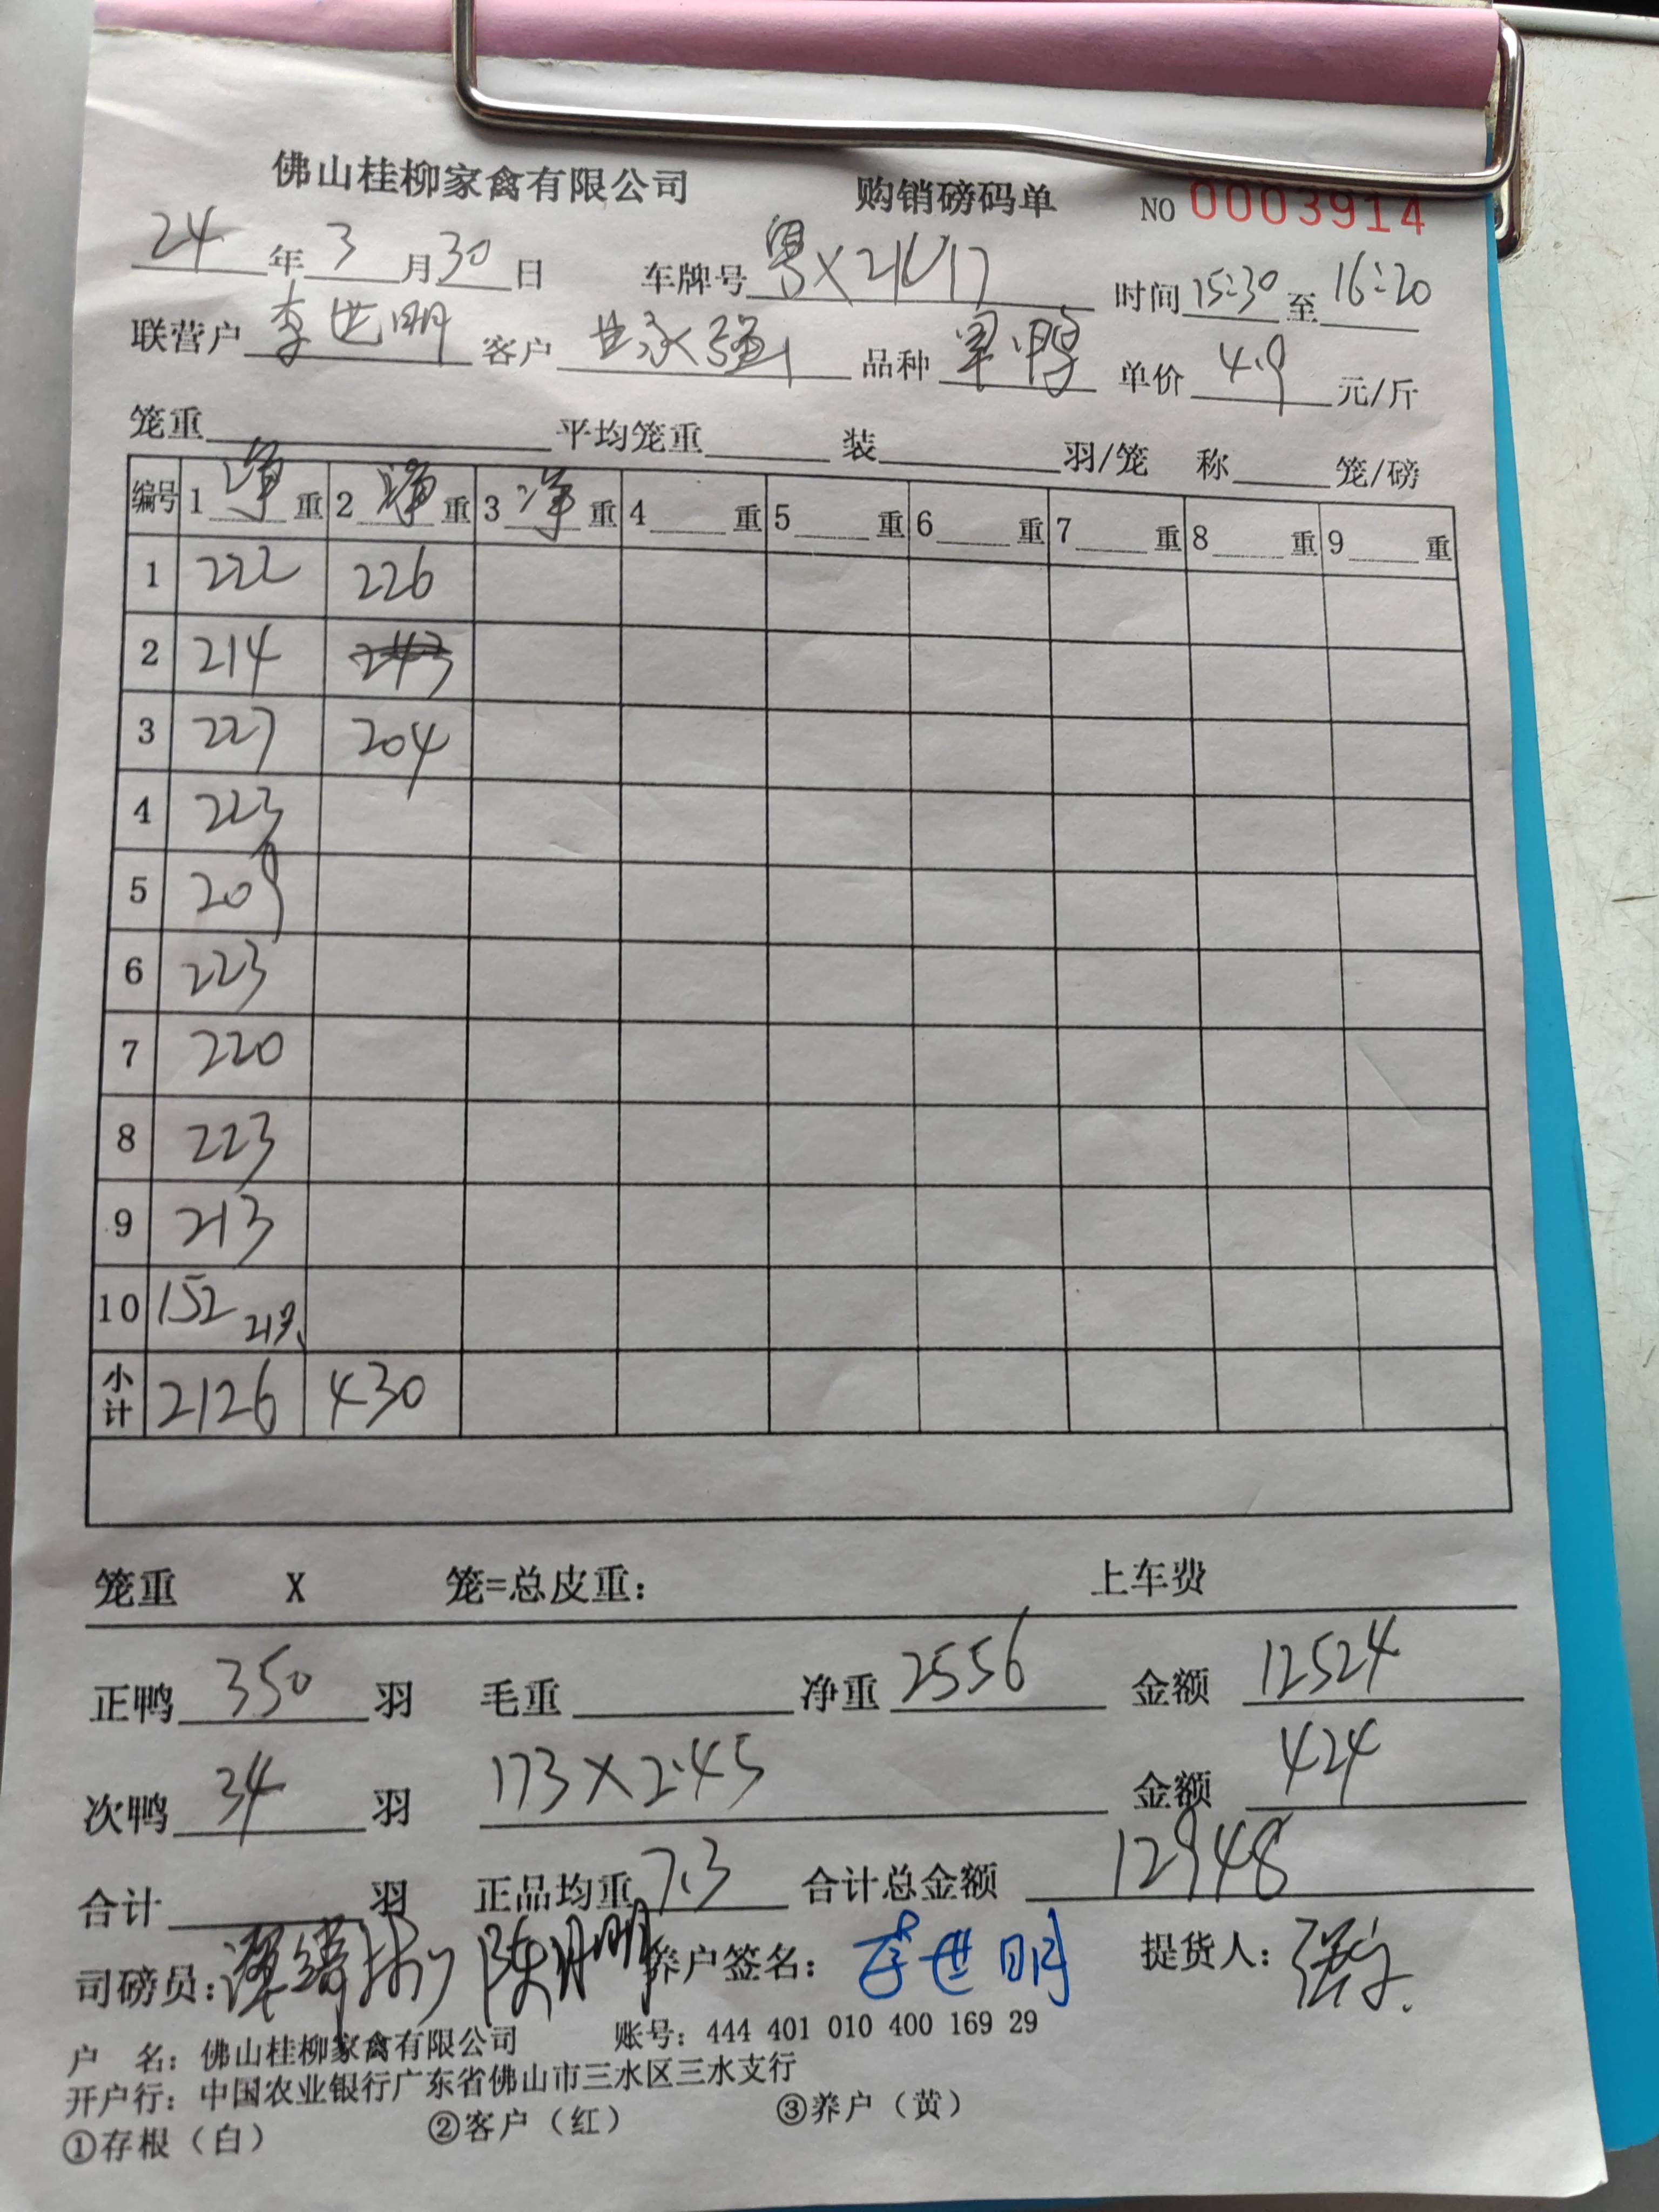 佛山桂柳家禽有限公司 购销磅码单 NO 0003914
24年3月30日 车牌号 粤X 时间15:30至16:20
联营户 李世明 客户 世永强 品种 鸭 单价 4.9 元/斤
笼重 平均笼重 装 羽/笼 称 笼/磅
编号 1 净 重 2 净 重 3 净 重 4 重 5 重 6 重 7 重 8 重 9 重
1 222 226
2 214 243
3 227 204
4 223
5 209
6 223
7 220
8 223
9 213
10 152 21只
小计 2126 430
笼重 X 笼=总皮重: 上车费
正鸭 350 羽 毛重 净重 2556 金额 12524
次鸭 34 羽 173×2.45 金额 424
合计 羽 正品均重 7.3 合计总金额 12948
司磅员: 养户签名: 李世明 提货人:
户 名: 佛山桂柳家禽有限公司 账号: 444 401 010 400 169 29
开户行: 中国农业银行广东省佛山市三水区三水支行
①存根(白) ②客户(红) ③养户(黄)